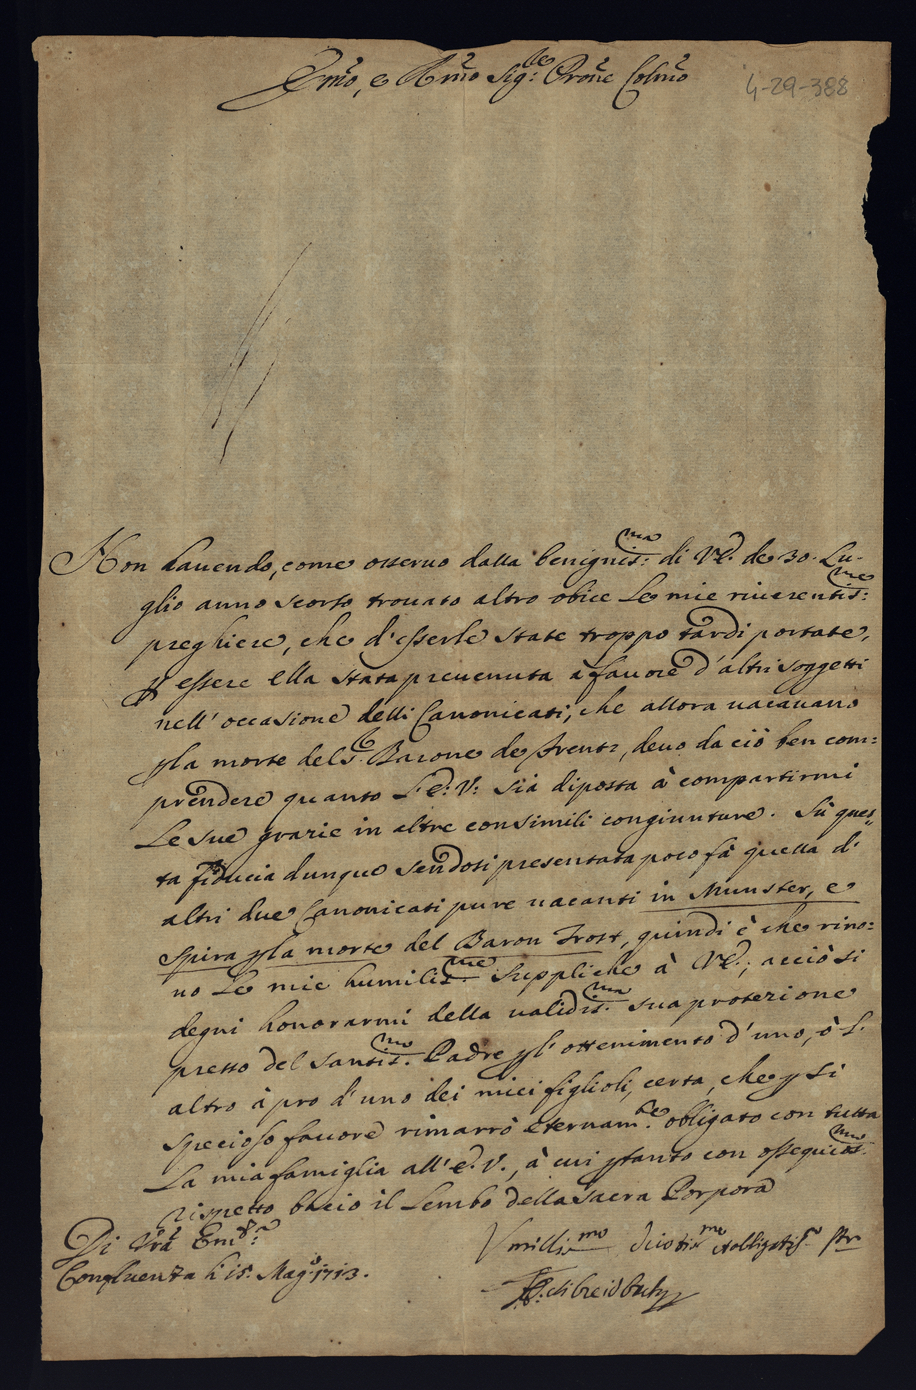 Emo, e Rmo Sig:re Prone Colmo
4-29-388
Non havendo, come osseruo dalla benignis:ma di VE. de 30. Lu-
glio anno scorso trouato altro obice Le mie riuerentis:me
preghiere, che d'esserle state troppo tardi portate,
p essere ella stata preuenuta à fauore d'altri soggetti
nell'occasione delli Canonicati, che allora uacauano
p la morte del S.r Barone de Frentz, deuo da ciò ben com:
prendere quanto L'E: V: sia diposta à compartirmi
Le sue grazie in altre consimili congiunture. Sù ques„
ta fiducia dunque sendosi presentata poco fà quella di
altri due Canonicati pure uacanti in Munster, e
Spira p la morte del Baron Trost, quindi è che rino:
uo Le mie humilis:me suppliche à VE., acciò si
degni honorarmi della ualidis:ma sua protezione
presso del Santis:mo Padre p l'ottenimento d'uno, ò l'
altro à pro d'uno dei miei figlioli, certa, che p si
specioso fauore rimarrò eternam:te obligato con tutta
La mia famiglia all'E. V., à cui p tanto con ossequios:mo
rispetto bacio il Lembo della Sacra Porpora
Di Vra Em:za
Confluenza li 15. Mag:o 1713.
Vmillis:mo deuotis:mo et obligatis:o